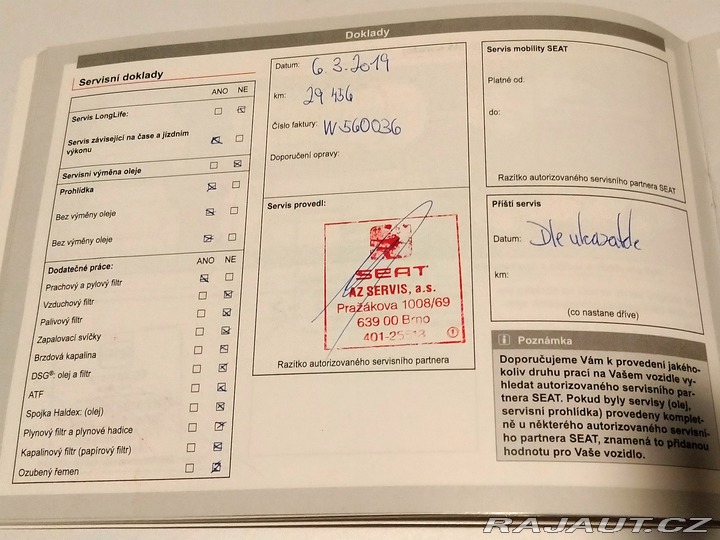 Doklady
Servisní doklady
ANO NE
Servis LongLife:
Servis závisející na čase a jízdním
výkonu
Servisní výměna oleje
Prohlídka
Bez výměny oleje
Bez výměny oleje
Dodatečné práce:
ANO NE
Prachový a pylový filtr
Vzduchový filtr
Palivový filtr
Zapalovací svíčky
Brzdová kapalina
DSG®: olej a filtr
ATF
Spojka Haldex: (olej)
Plynový filtr a plynové hadice
Kapalinový filtr (papírový filtr)
Ozubený řemen
Datum: 6.3.2019
km: 29 436
Číslo faktury: W560036
Doporučení opravy:
Servis provedl:
SEAT
AZ SERVIS, a.s.
Pražákova 1008/69
639 00 Brno
1
Razítko autorizovaného servisního partnera
Servis mobility SEAT
Platné od:
do:
Razítko autorizovaného servisního partnera SEAT
Příští servis
Datum: Dle ukazatele
km:
(co nastane dříve)
i Poznámka
Doporučujeme Vám k provedení jakého-
koliv druhu prací na Vašem vozidle vy-
hledat autorizovaného servisního par-
tnera SEAT. Pokud byly servisy (olej,
servisní prohlídka) provedeny komplet-
ně u některého autorizovaného servisní-
ho partnera SEAT, znamená to přidanou
hodnotu pro Vaše vozidlo.
RAJAUT.CZ